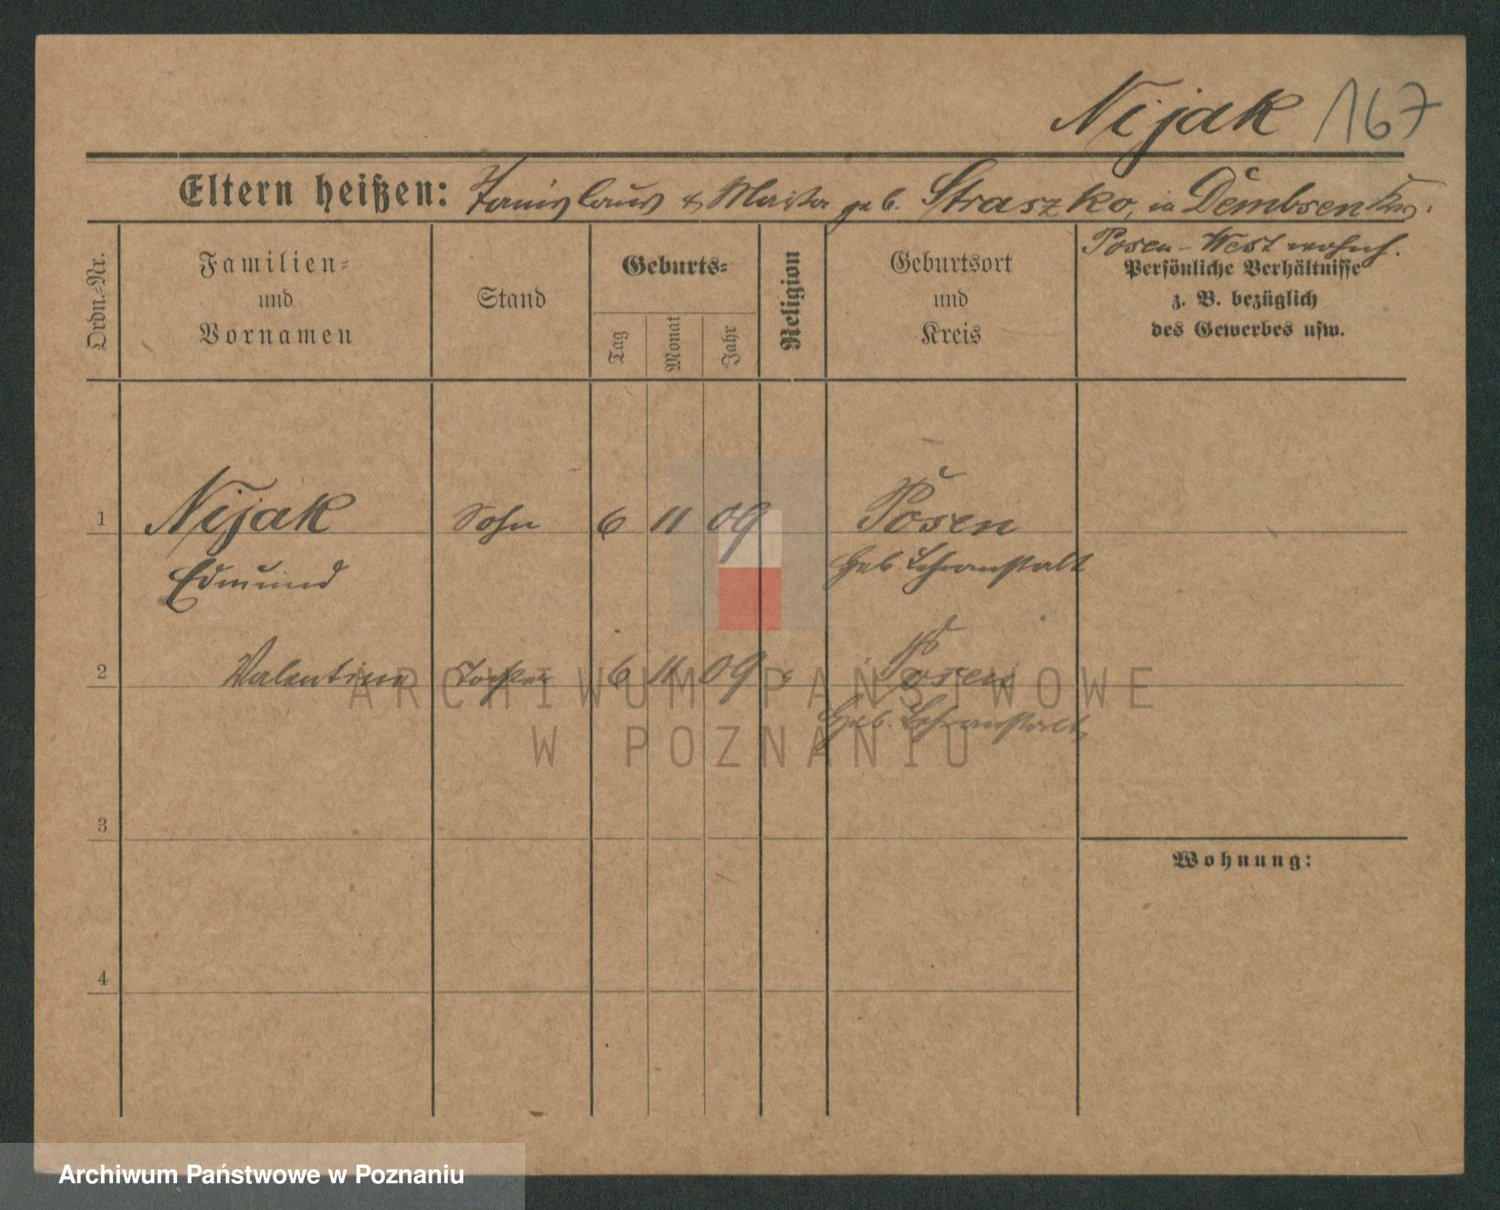 Nijak 167
Eltern heißen: Stanislaus & Maria geb. Straszko, in Dembsen Krs.
Posen-West wohnh.
Ordn.-Nr.
Familien-
und
Vornamen
Stand
Geburts-
Tag
Monat
Jahr
Religion
Geburtsort
und
Kreis
Persönliche Verhältnisse
z. B. bezüglich
des Gewerbes usw.
1 Nijak Sohn 6 11 09 Posen
Edmund Heb. Lehranstalt
2 Valentina Tochter 6 11 09 Posen
Heb. Lehranstalt
3
Wohnung:
4
ARCHIWUM PAŃSTWOWE
W POZNANIU
Archiwum Państwowe w Poznaniu